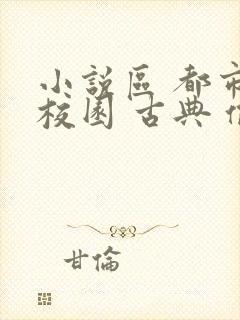 小說區 都市
校園 古典
甘倫